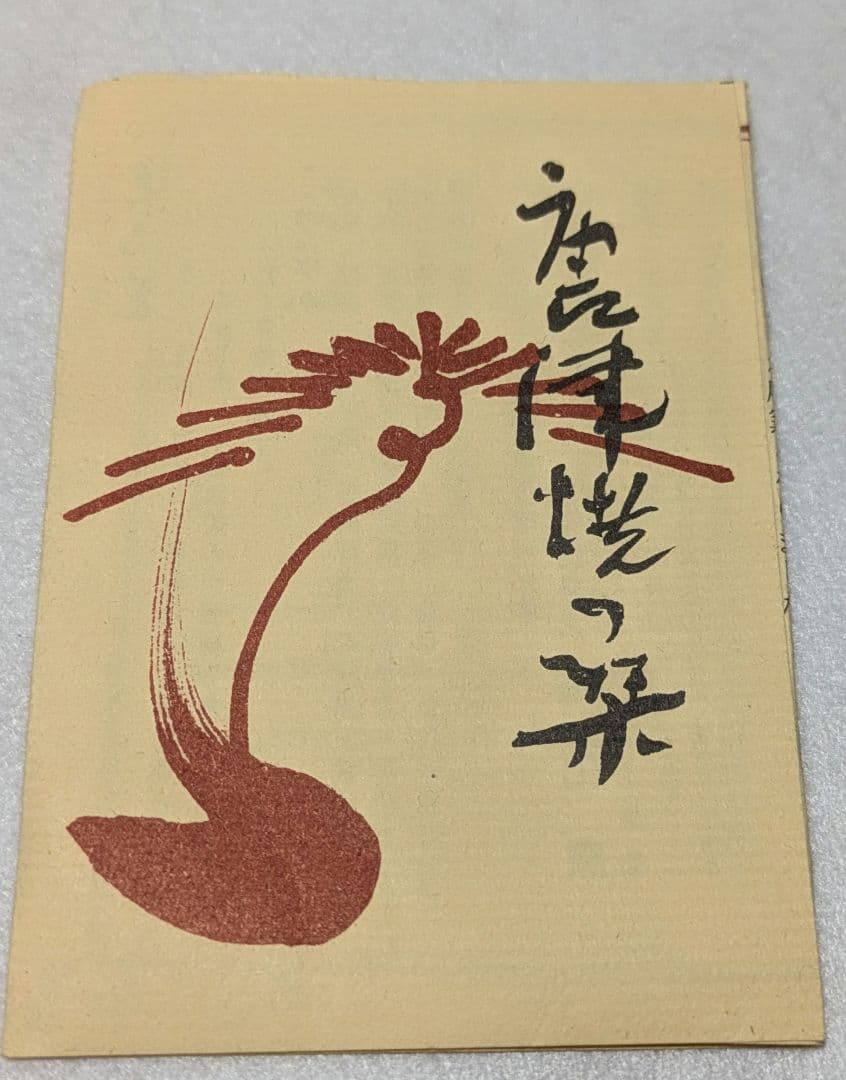 唐津焼の栞